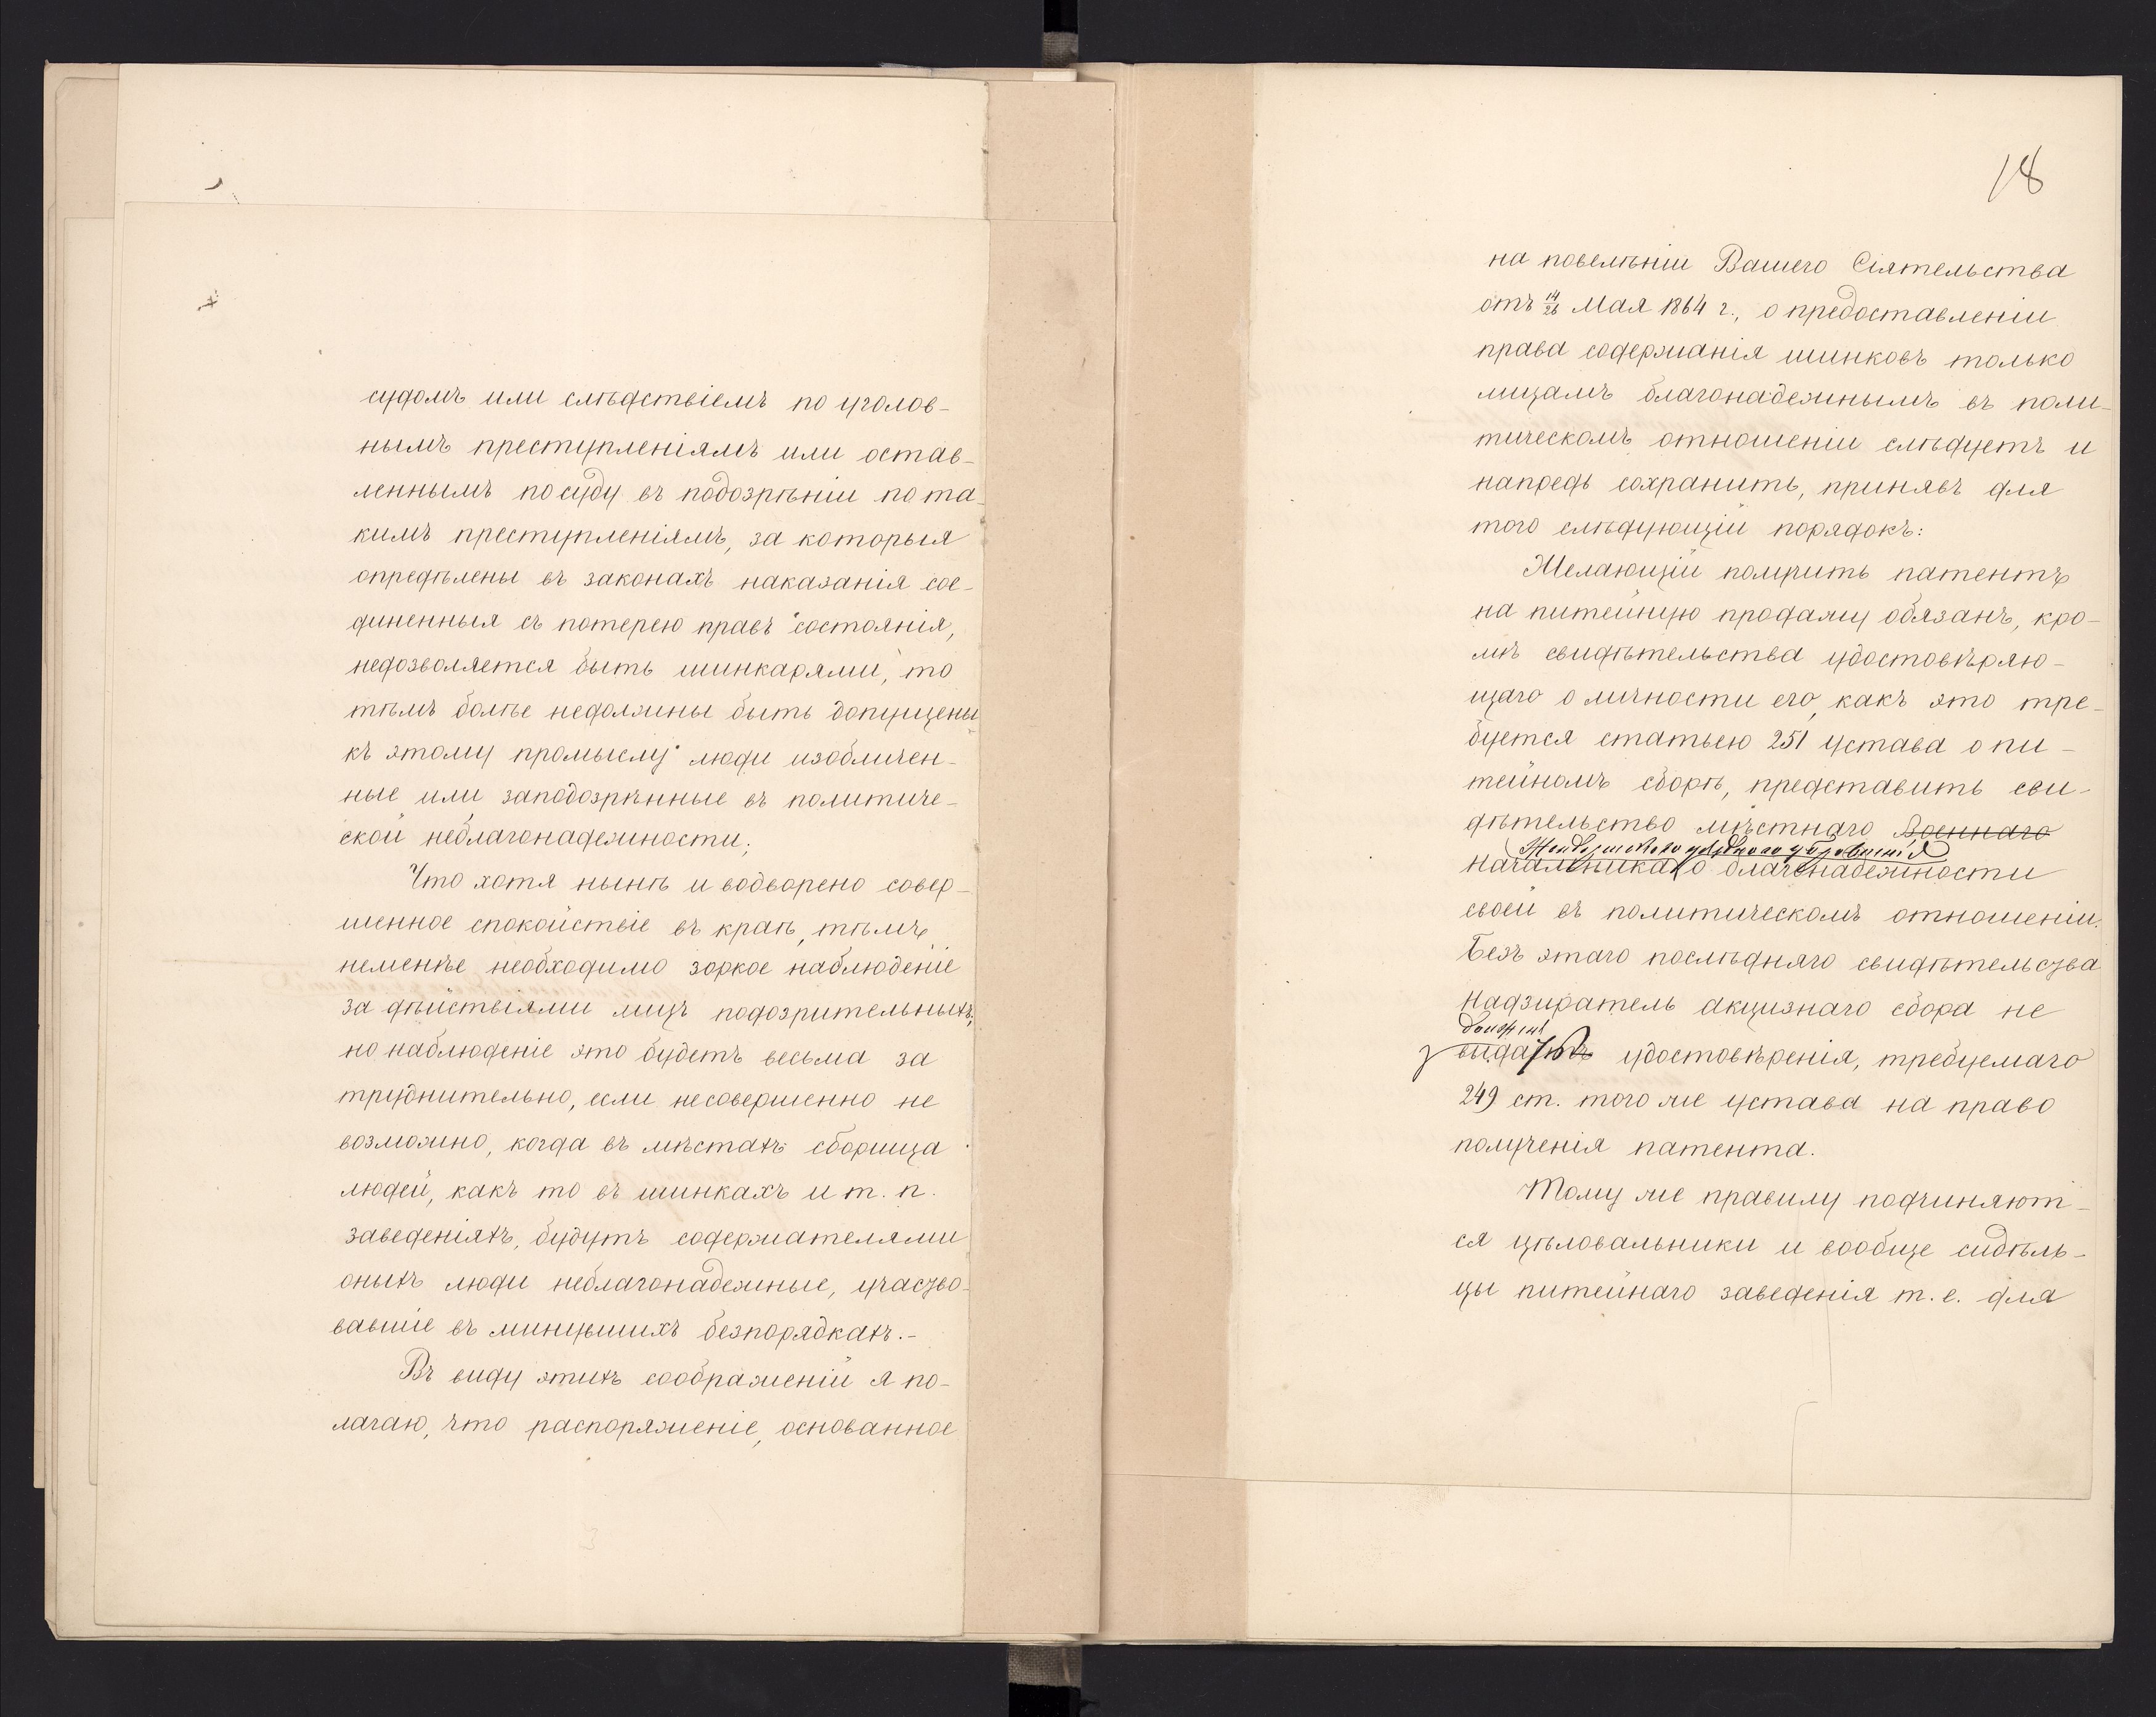 судомъ или слѣдствіемъ по уголов-
нымъ преступленіямъ или остав-
леннымъ по суду въ подозрѣніи по та-
кимъ преступленіямъ, за которыя
опредѣлены въ законахъ наказанія сое-
диненныя съ потерею правъ состоянія,
недозволяется быть шинкарями, то
тѣмъ болѣе недолжны быть допущены
къ этому промыслу люди изобличен-
ные или заподозрѣнные въ политиче-
ской неблагонадежности;
Что хотя нынѣ и водворено совер-
шенное спокойствіе въ краѣ, тѣмъ
неменѣе необходимо зоркое наблюденіе
за дѣйствіями лицъ подозрительныхъ,
но наблюденіе это будетъ весьма за
труднительно, если несовершенно не
возможно, когда въ мѣстахъ сборища
людей, какъ то въ шинкахъ и т. п.
заведеніяхъ, будутъ содержателями
оныхъ люди неблагонадежные, участво-
вавшіе въ минувшихъ безпорядкахъ.-
Въ виду этихъ соображеній я по-
лагаю, что распоряженіе, основанное
18
на повелѣніи Вашего Сіятельства
отъ 14/26 Мая 1864 г., о предоставленіи
права содержанія шинковъ только
лицамъ благонадежнымъ въ поли-
тическомъ отношеніи слѣдуетъ и
напредь сохранить, принявъ для
того слѣдующій порядокъ:
Желающій получить патентъ
на питейную продажу обязанъ, кро-
мѣ свидѣтельства удостовѣряю-
щаго о личности его, какъ это тре-
буется статьею 251 устава о пи-
тейномъ сборѣ, представить сви-
дѣтельство мѣстнаго Военнаго
Жандармскаго уѣзднаго управленія
Начальника о благонадежности
своей въ политическомъ отношеніи.
Безъ этаго послѣдняго свидѣтельства
Надзиратель акцизнаго сбора не
долженъ
выдать удостовѣренія, требуемаго
249 ст. того же устава на право
полученія патента.
Тому же правилу подчиняют-
ся цѣловальники и вообще сидѣль-
цы питейнаго заведенія т. е. для